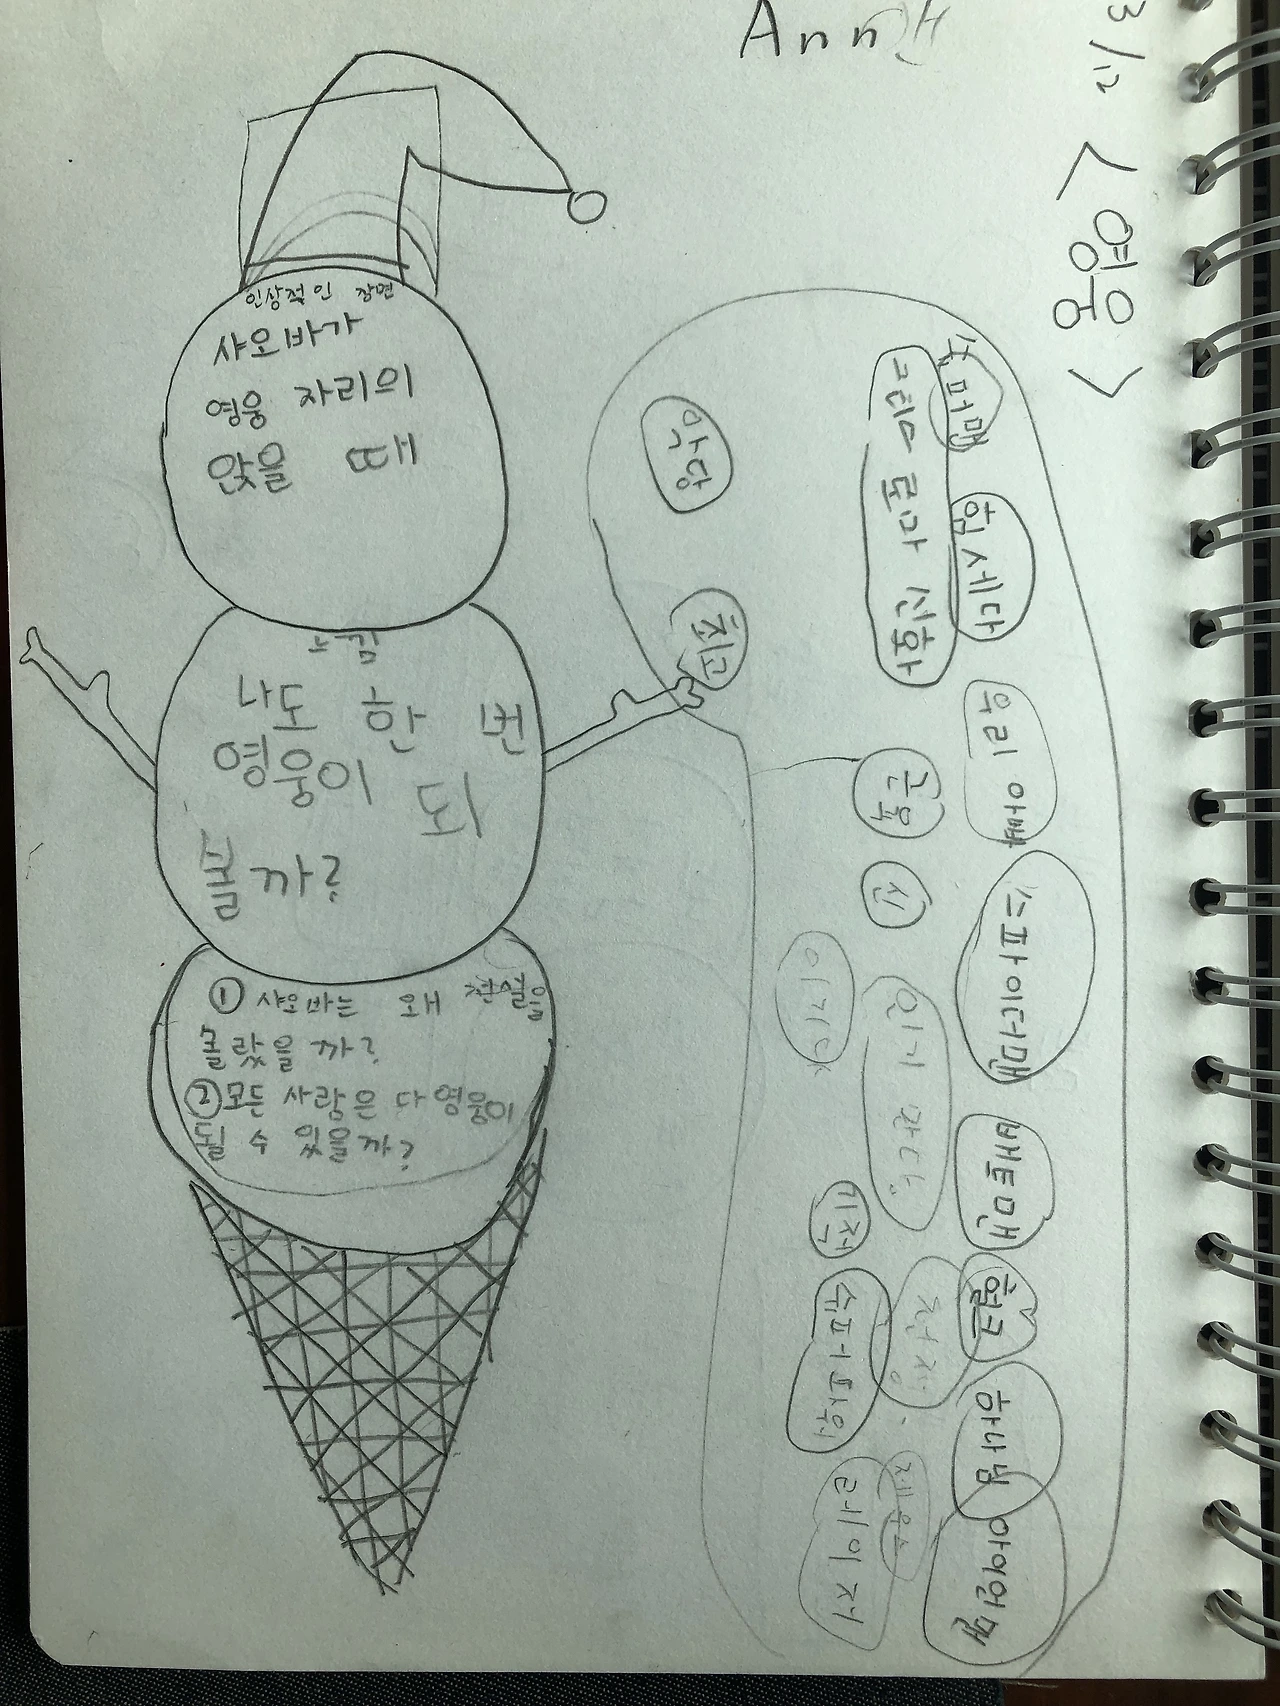 Ann
3/12
<영웅>
인상적인 장면
샤오바가
영웅 자리의
앉을 때
느낌
나도 한 번
영웅이 되
볼까?
① 샤오바는 왜 현실을
몰랐을 까?
② 모든 사람은 다 영웅이
될 수 있을까?
슈퍼맨
힘 세다
우리 아빠
스파이더맨
배트맨
헐크
하나님
아이언맨
그리스 로마 신화
근육
신
인기 많다
전쟁
제우스
악당
최고
이기다
기적
슈퍼 파워
레이저